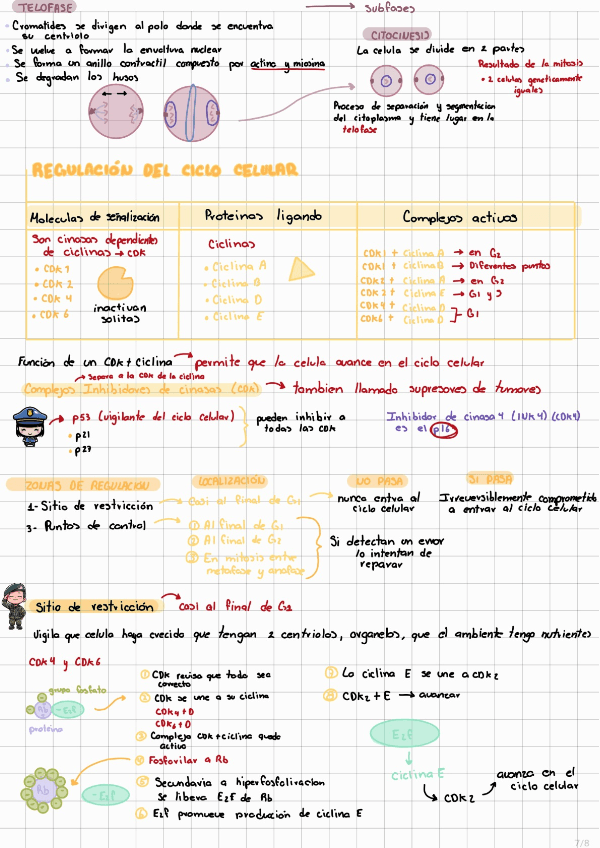 TELOFASE
Subfases
• Cromatides se divigen al polo donde se encuentra
su centriolo
• Se vuelve a formar la envoltura nuclear
• Se forma un anillo contractil compuesto por actina y miosina
• Se degradan los husos
CITOCINESIS
La celula se divide en 2 partes
Resultado de la mitosis
• 2 celulas geneticamente
iguales
Proceso de separación y segmentacion
del citoplasma y tiene lugar en la
telofase
REGULACIÓN DEL CICLO CELULAR
Moleculas de señalización
Proteinas ligando
Complejos activos
Son cinasas dependientes
de ciclinas → CDK
• CDK 1
• CDK 2
• CDK 4
• CDK 6
inactivan
solitas
Ciclinas
• Ciclina A
• Ciclina B
• Ciclina D
• Ciclina E
CDK1 + Ciclina A → en G2
CDK1 + Ciclina B → Diferentes puntos
CDK2 + Ciclina A → en G2
CDK2 + Ciclina E → G1 y S
CDK4 + Ciclina D
CDK6 + Ciclina D
G1
Función de un CDK + Ciclina → permite que la celula avance en el ciclo celular
→ Separa a la CDK de la ciclina
Complejos Inhibidores de cinasas (CDK) → tambien llamado supresores de tumores
→ p53 (vigilante del ciclo celular)
• p21
• p27
pueden inhibir a
todas las CDK
Inhibidor de cinasa 4 (INK4) (CDK4)
es el p16
ZONAS DE REGULACION
LOCALIZACIÓN
NO PASA
SI PASA
1- Sitio de restricción
Casi al final de G1
nunca entra al
ciclo celular
Irreversiblemente comprometida
a entrar al ciclo celular
3- Puntos de control
① Al final de G1
② Al final de G2
③ En mitosis entre
metafase y anafase
Si detectan un error
lo intentan de
reparar
Sitio de restricción → casi al final de G1
Vigila que celula haya crecido que tengan 2 centriolos, organelos, que el ambiente tenga nutrientes
CDK4 y CDK6
grupo fosfato
Rb
E2f
proteina
Rb
E2f
① CDK revisa que todo sea
correcto
② CDK se une a su ciclina
CDK4 + D
CDK6 + D
③ Complejo CDK + ciclina queda
activo
④ Fosforilar a Rb
⑤ Secundaria a hiperfosfolivacion
se libera E2f de Rb
⑥ E2f promueve producción de ciclina E
⑦ La ciclina E se une a CDK2
⑧ CDK2 + E → avanzar
E2f
Ciclina E
CDK2
avanza en el
ciclo celular
7/8